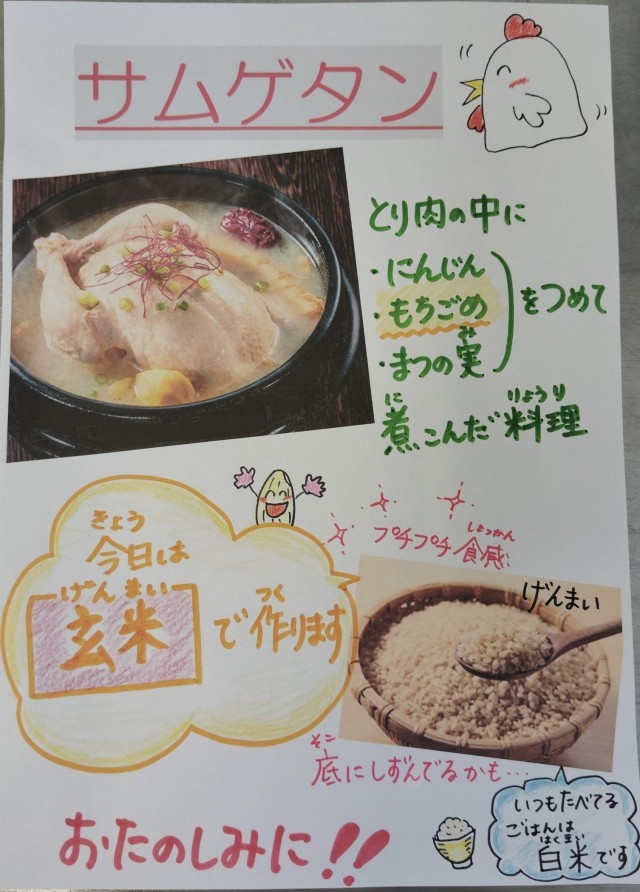 サムゲタン
とり肉の中に
・にんじん
・もちごめ
・まつの実
み
をつめて
に
りょうり
煮こんだ料理
きょう
今日は
げんまい
玄米
つく
で作ります
しょっかん
プチプチ食感♪
げんまい
そこ
底にしずんでるかも…
いつもたべてる
ごはんは
はくまい
白米です
おたのしみに!!